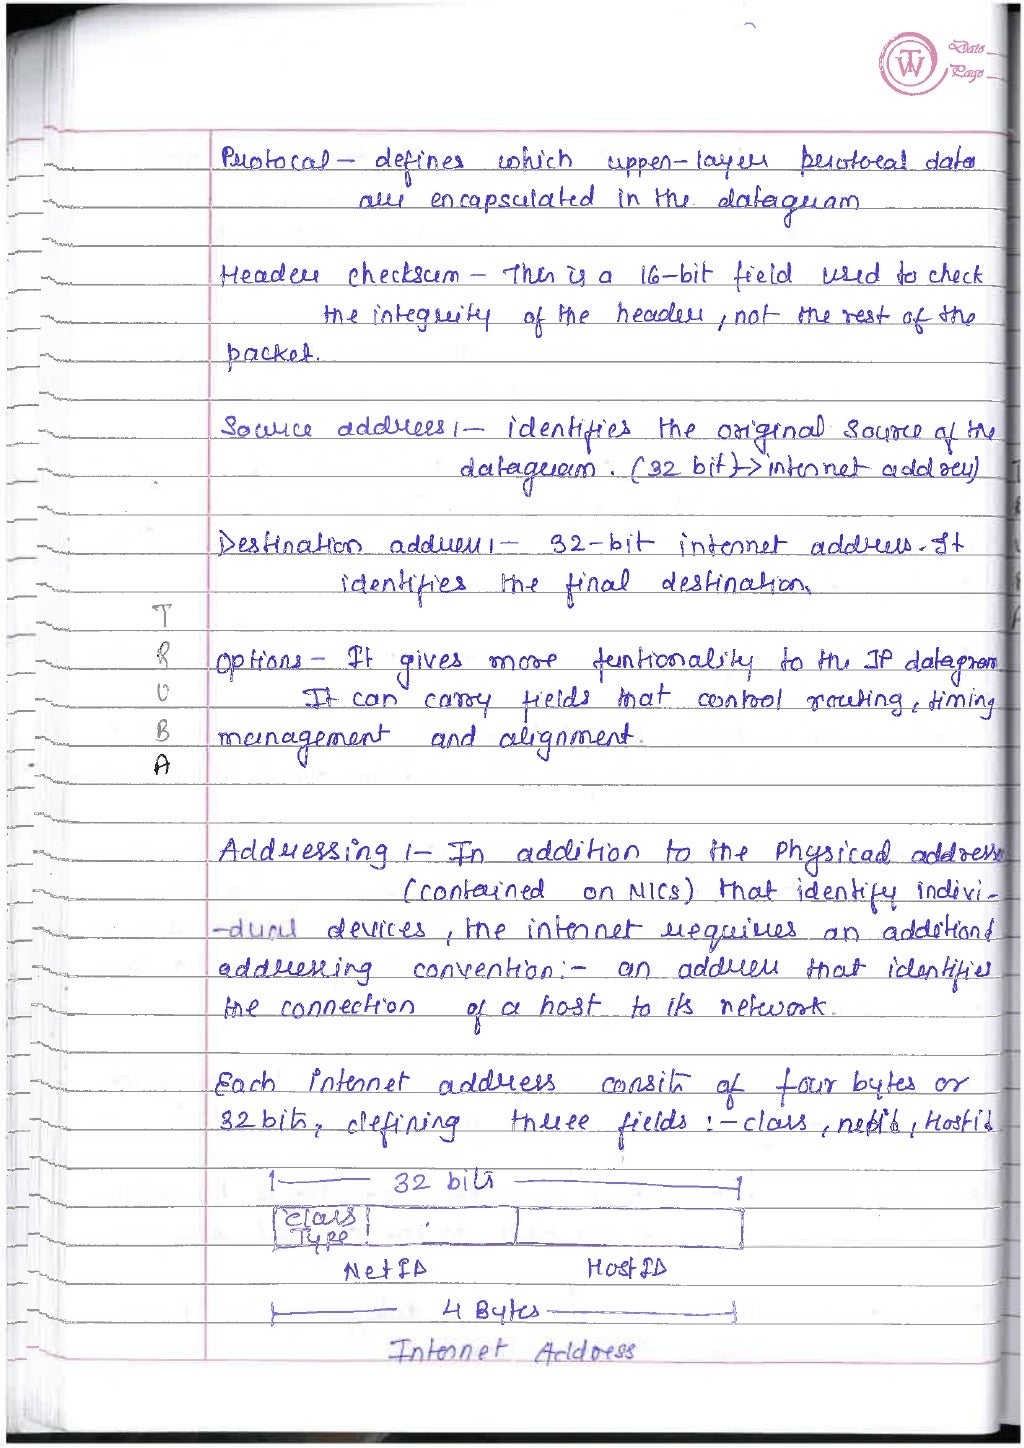 TW Date
Page
Protocal - defines which upper-layer protocal data
are encapsulated in the datagram
Header checksum - This is a 16-bit field used to check
the integrity of the header, not the rest of the
packet.
Source address :- identifies the original source of the
datagram. (32 bit) -> internet address)
Destination address :- 32-bit internet address. It
identifies the final destination.
T
R
U
B
A
Options - It gives more funtionality to the IP datagram
It can carry fields that control routing, timing
management and alignment.
Addressing :- In addition to the physical address
(contained on NICs) that identify indivi-
-dual devices, the internet requires an additional
addressing convention:- an address that identifies
the connection of a host to its network.
Each internet address consits of four bytes or
32 bits, defining three fields :- class, netid, Hostid
32 bits
class
Type
NetID HostID
4 Bytes
Internet Address